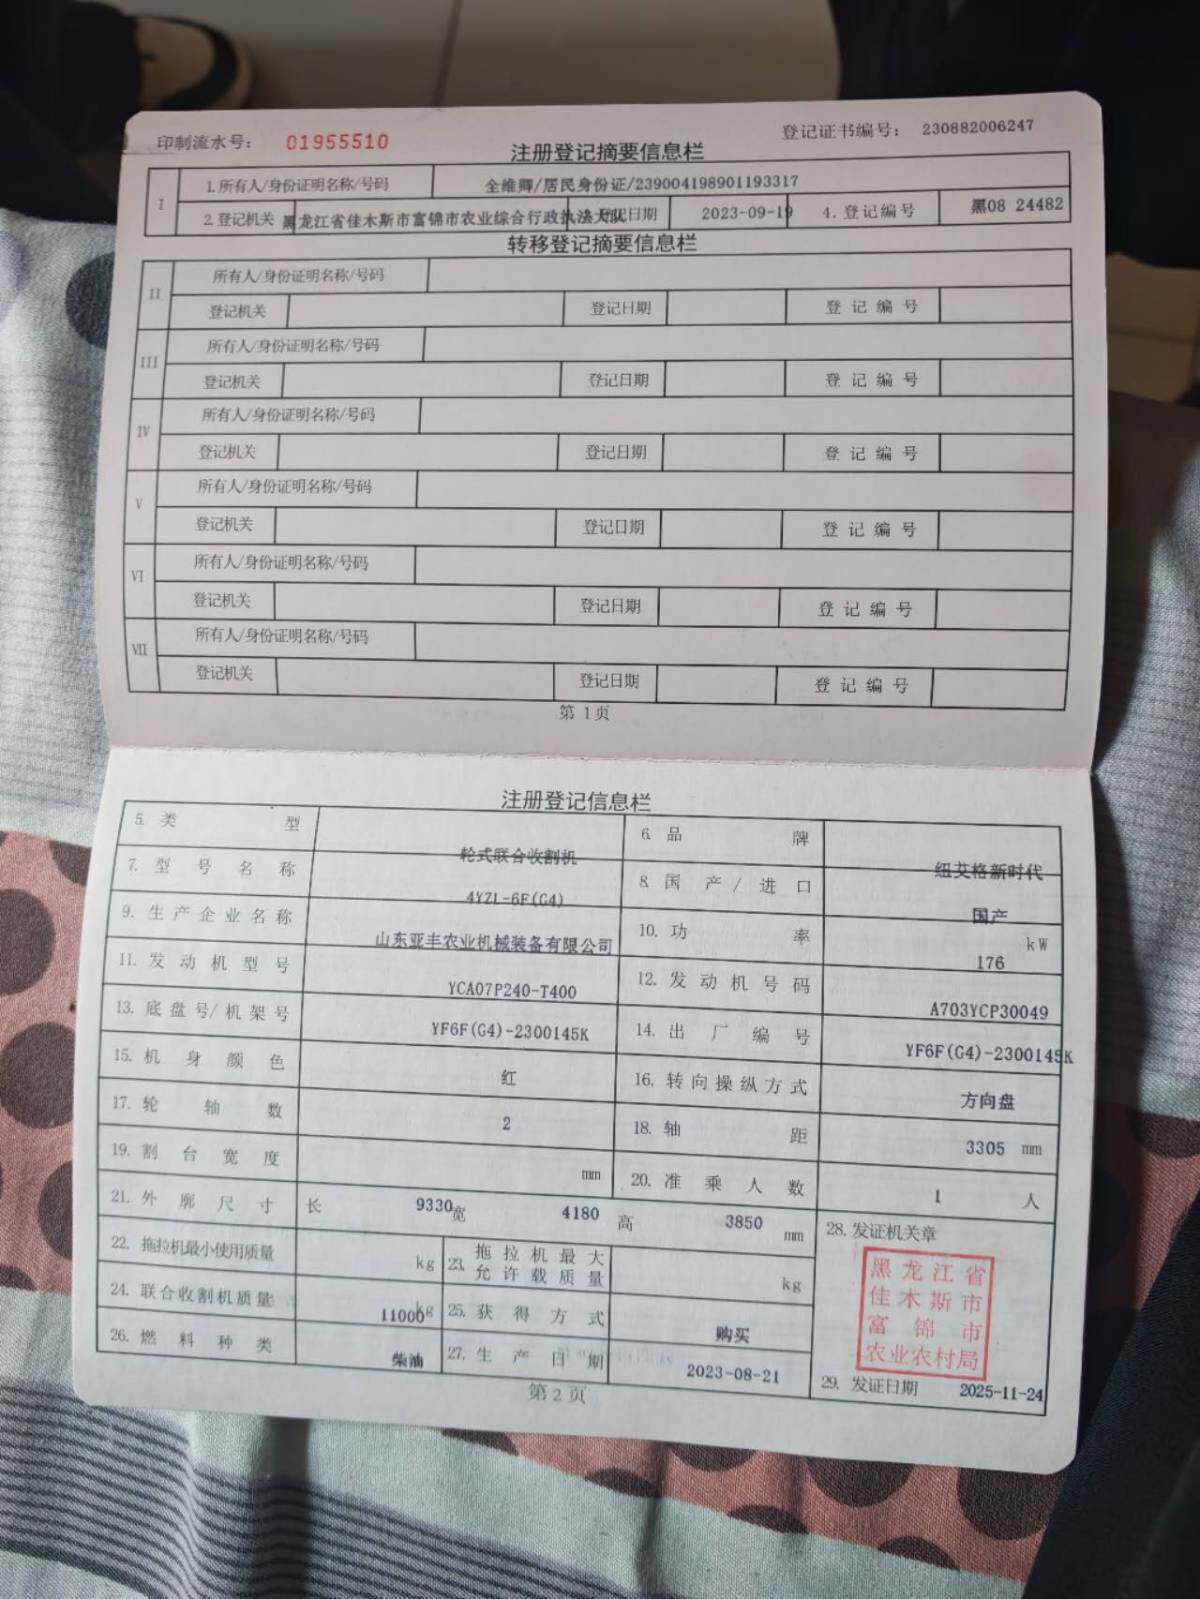 印制流水号： 01955510 登记证书编号： 230882006247
注册登记摘要信息栏
I 1.所有人/身份证明名称/号码 全维卿/居民身份证/239004198901193317
2.登记机关 黑龙江省佳木斯市富锦市农业综合行政执法大队 登记日期 2023-09-19 4.登记编号 黑08 24482
转移登记摘要信息栏
II 所有人/身份证明名称/号码
登记机关 登记日期 登记编号
III 所有人/身份证明名称/号码
登记机关 登记日期 登记编号
IV 所有人/身份证明名称/号码
登记机关 登记日期 登记编号
V 所有人/身份证明名称/号码
登记机关 登记日期 登记编号
VI 所有人/身份证明名称/号码
登记机关 登记日期 登记编号
VII 所有人/身份证明名称/号码
登记机关 登记日期 登记编号
第 1 页
注册登记信息栏
5.类型 轮式联合收割机 6.品牌 纽艾格新时代
7.型号名称 4YZL-6F(G4) 8.国产/进口 国产
9.生产企业名称 山东亚丰农业机械装备有限公司 10.功率 176 kW
11.发动机型号 YCA07P240-T400 12.发动机号码 A703YCP30049
13.底盘号/机架号 YF6F(G4)-2300145K 14.出厂编号 YF6F(G4)-2300145K
15.机身颜色 红 16.转向操纵方式 方向盘
17.轮轴数 2 18.轴距 3305 mm
19.割台宽度 mm 20.准乘人数 1 人
21.外廓尺寸 长 9330 宽 4180 高 3850 mm 28.发证机关章
22.拖拉机最小使用质量 kg 23.拖拉机最大允许载质量 kg
24.联合收割机质量 11000 kg 25.获得方式 购买
26.燃料种类 柴油 27.生产日期 2023-08-21
黑龙江省
佳木斯市
富锦市
农业农村局
29.发证日期 2025-11-24
第 2 页